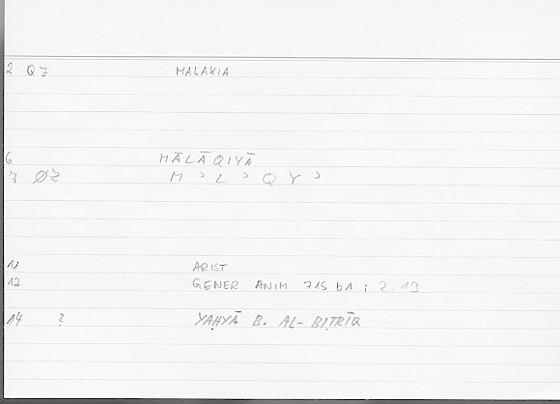 2 Q7 MALAKIA
6 MĀLĀQIYĀ
7 ØZ M ʾ L ʾ Q Y ʾ
11 ARIST
12 GENER ANIM 715 b1 ; 2.19
14 ? YAḤYĀ B. AL-BIṬRĪQ